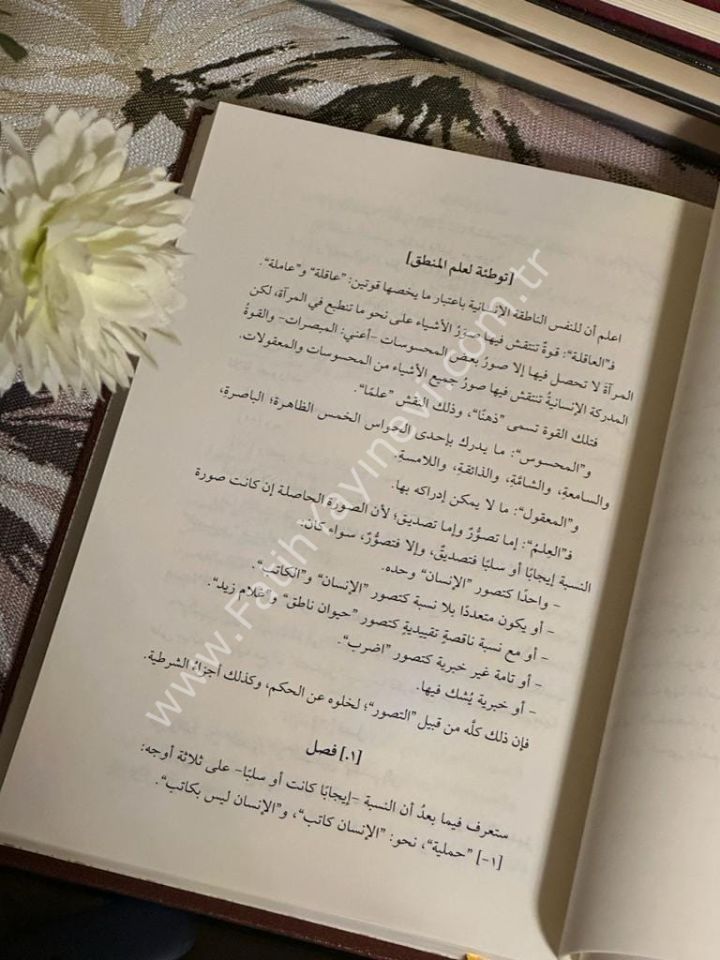 [توطئة لعلم المنطق]
اعلم أن للنفس الناطقة الإنسانية باعتبار ما يخصها قوتين: "عاقلة" و"عاملة".
فـ"العاقلة": قوةٌ تنتقش فيها صورُ الأشياء على نحو ما تنطبع في المرآة، لكن
المرآة لا تحصل فيها إلا صورُ بعض المحسوسات -أعني: المبصرات- والقوةُ
المدركة الإنسانيةُ تنتقش فيها صورُ جميع الأشياء من المحسوسات والمعقولات.
فتلك القوة تسمى "ذهنًا"، وذلك النقش "علمًا".
و"المحسوس": ما يدرك بإحدى الحواس الخمس الظاهرة؛ الباصرة،
والسامعةِ، والشامَّةِ، والذائقةِ، واللامسةِ.
و"المعقول": ما لا يمكن إدراكه بها.
فـ"العِلمُ": إما تصوُّرٌ وإما تصديق؛ لأن الصورة الحاصلة إن كانت صورة
النسبة إيجابًا أو سلبًا فتصديقٌ، وإلا فتصوُّرٌ، سواء كان:
- واحدًا كتصور "الإنسان" وحده.
- أو يكون متعددًا بلا نسبة كتصور "الإنسان" و"الكاتب".
- أو مع نسبة ناقصةٍ تقييديةٍ كتصور "حيوان ناطق" و"غلام زيد".
- أو تامة غير خبرية كتصور "اضرب".
- أو خبرية يُشك فيها.
فإن ذلك كلَّه من قبيل "التصور"؛ لخلوه عن الحكم، وكذلك أجزاءُ الشرطية.
[٠١] فصل
ستعرف فيما بعدُ أن النسبة -إيجابًا كانت أو سلبًا- على ثلاثة أوجه:
[١-] "حملية"، نحو: "الإنسان كاتب"، و"الإنسان ليس بكاتب".
www.FatihYayinevi.com.tr